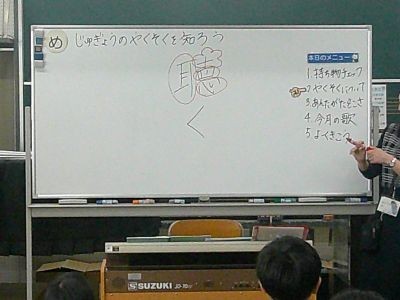 め じゅぎょうのやくそくを知ろう
聴
く
本日のメニュー
1.持ち物チェック
2.やくそくについて
3.あんたがたどこさ
4.今月の歌
5.よくきこう
SUZUKI